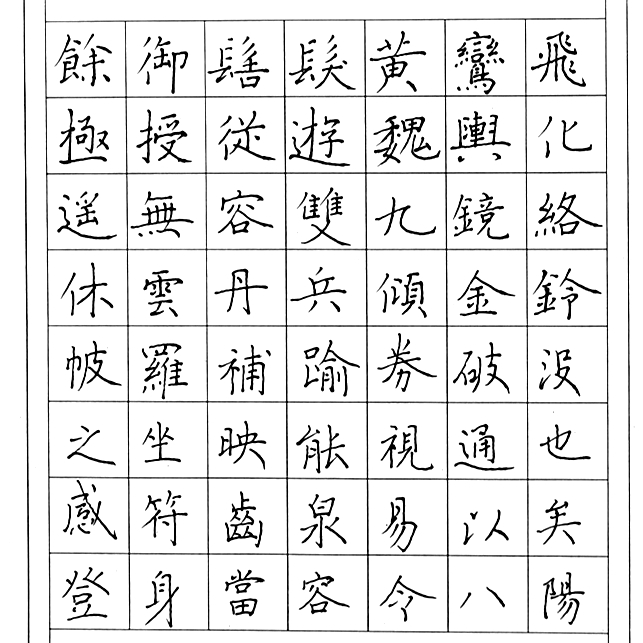 飛化絡鈴没也矣陽
鸞輿鏡金破通以八
黃魏九傾券視易令
髮遊雙兵踰能泉容
髻從容丹補映齒當
御授無雲羅坐符身
餘極遥休帔之感登